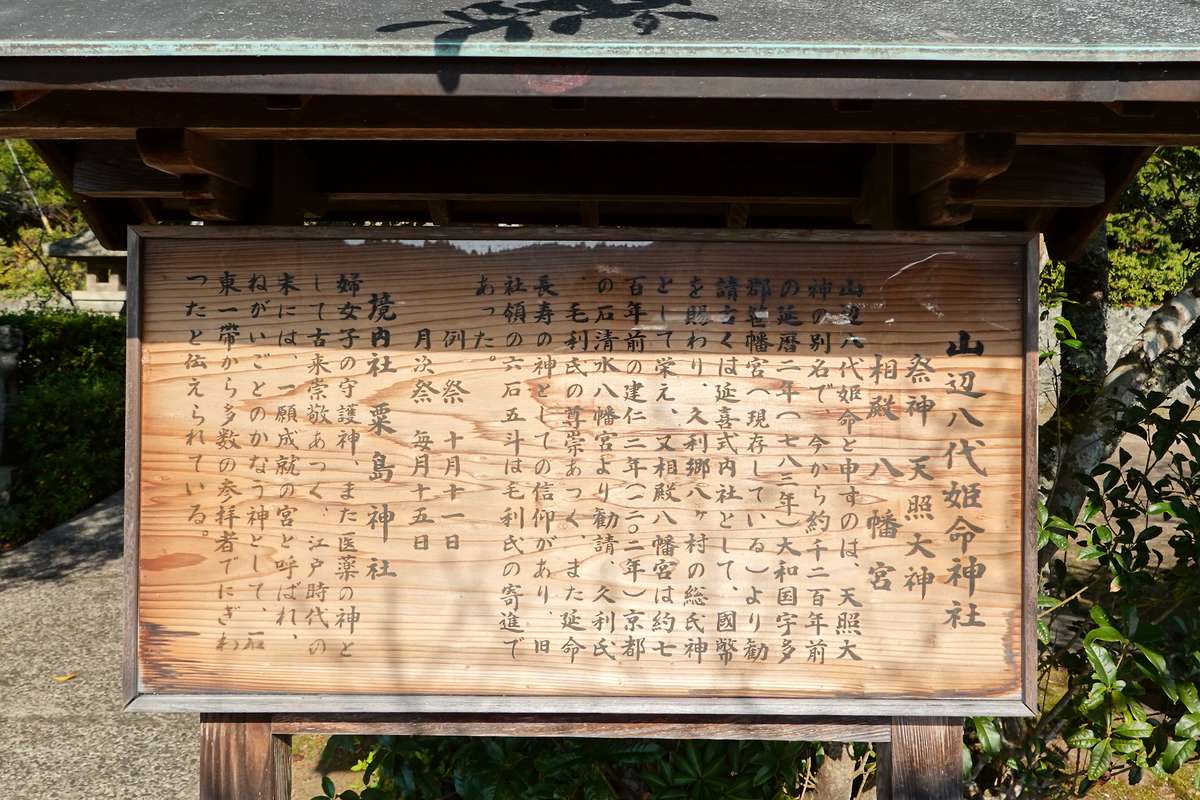 山辺八代姫命神社
祭神 天照大神
相殿 八幡宮
山辺八代姫命と申すのは、天照大
神の別名で、今から約千二百年前
の延暦二年(七八三年)大和国宇多
郡辺幡宮(現存している)より勧
請古くは延喜式内社として、國幣
を賜わり、久利郷八ヶ村の総氏神
として栄え、又相殿八幡宮は約七
百年前の建仁二年(一二〇二年)京都
の石清水八幡宮より勧請、久利氏
、毛利氏の尊崇あつく、また延命
長寿の神としての信仰があり、旧
社領の六石五斗は毛利氏の寄進で
あった。
例祭 十月十一日
月次祭 毎月十五日
境内社 粟島神社
婦女子の守護神、また医薬の神と
して古来崇敬あつく、江戸時代の
末には、一願成就の宮と呼ばれ、
ねがいごとのかなう神として、石
東一帯から多数の参拝者でにぎわ
つたと伝えられている。